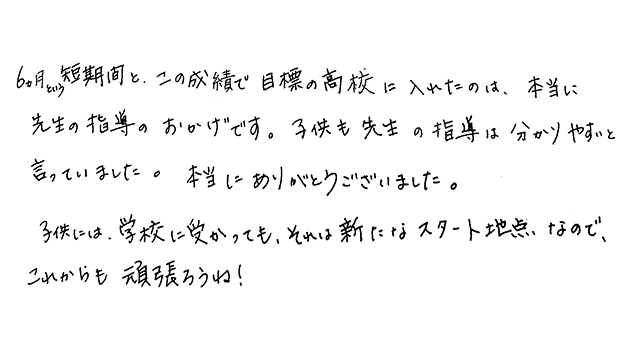 6ヵ月という短期間と、この成績で目標の高校に入れたのは、本当に
先生の指導のおかげです。子供も先生の指導は分かりやすいと
言っていました。本当にありがとうございました。
子供には、学校に受かっても、それは新たなスタート地点、なので、
これからも頑張ろうね!